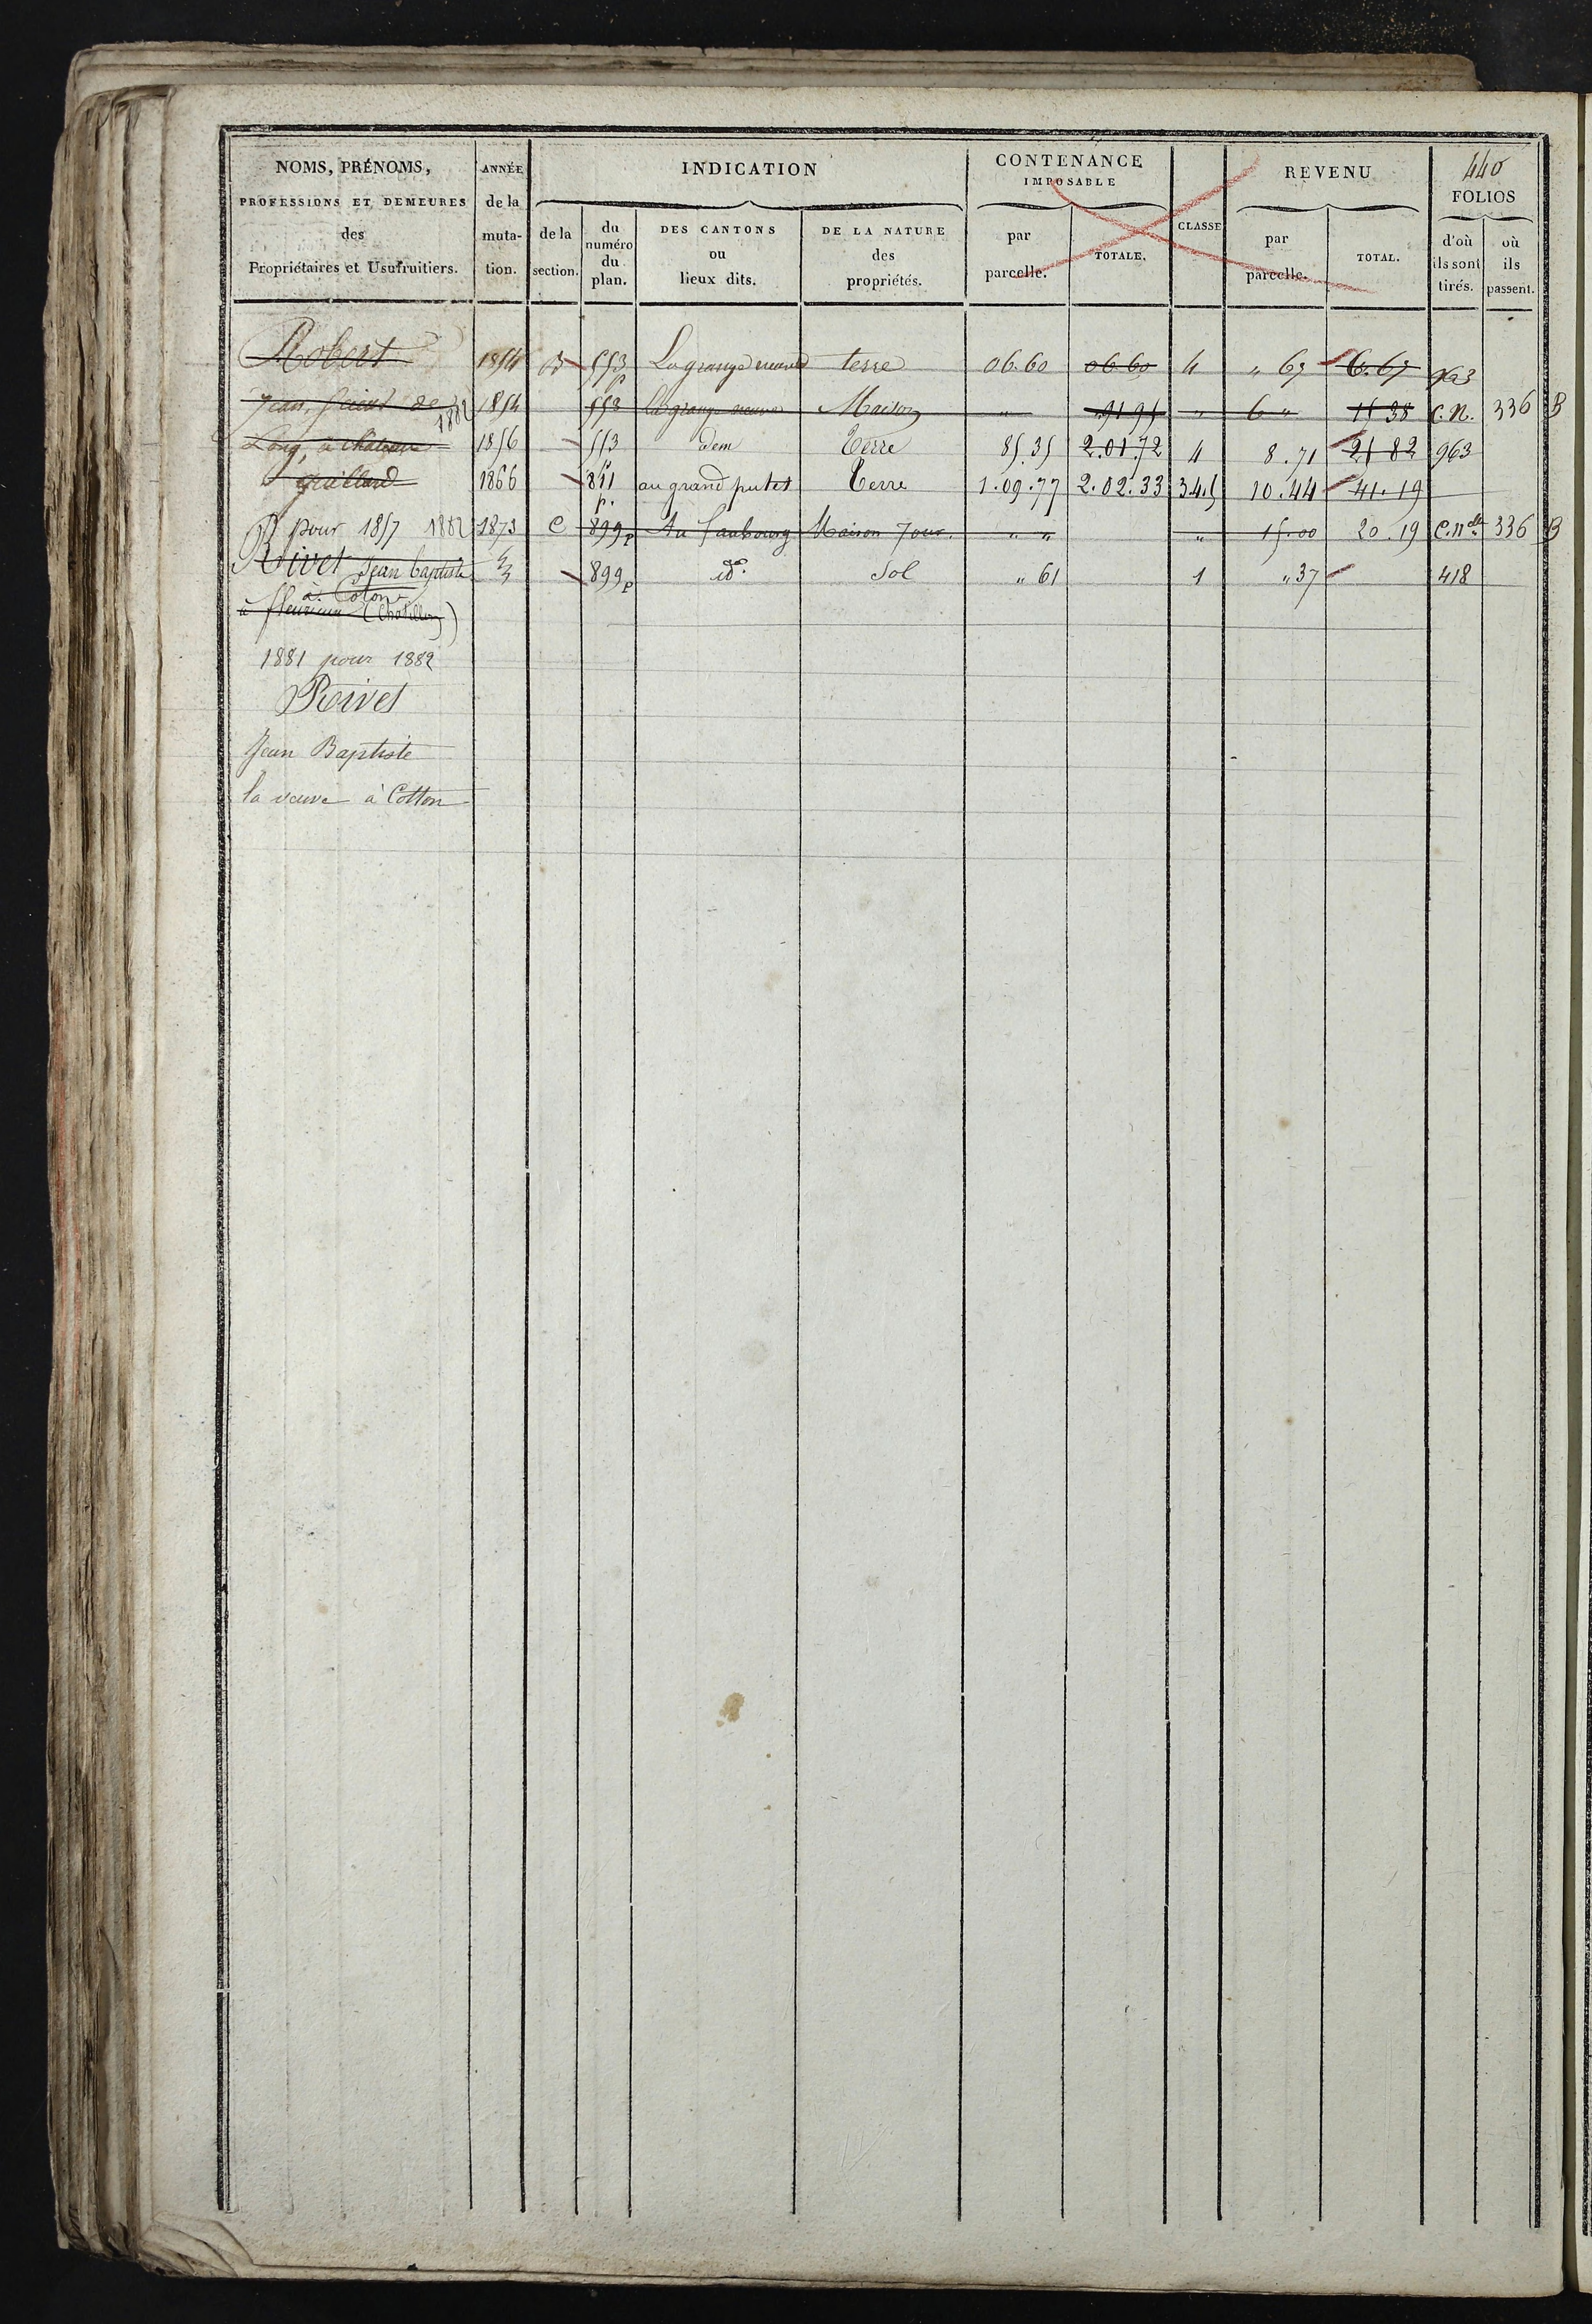 440
NOMS, PRÉNOMS,
PROFESSIONS ET DEMEURES
des
Propriétaires et Usufruitiers.
ANNÉE
de la
muta-
tion.
INDICATION
de la
section.
du
numéro
du
plan.
DES CANTONS
ou
lieux dits.
DE LA NATURE
des
propriétés.
CONTENANCE
IMPOSABLE
par
parcelle.
TOTALE.
CLASSE
REVENU
par
parcelle.
TOTAL.
FOLIOS
d'où
ils sont
tirés.
où
ils
passent.
Robert 1854 B 553 p La grange neuve terre 06.60 06.60 4 " 67 6.67 963
Jean, de 1882 1854 553 la grange neuve Maison " 91 95 " 6 " 15 38 C.N. 336 B
Long, à 1856 553 p dem Terre 85.35 2.01.72 4 8.71 21 82 963
gaillard 1866 811 p. au grand putet Terre 1.09.77 2.02.33 3.4.5 10.44 41.19
pour 1857 1882 1873 C 899 p Au faubourg Maison Jour. " " " 15.00 20.19 C.Nelle 336 B
Rivet Jean baptiste 899 p do. Sol " 61 1 " 37 418
à Coton
à fleurieux (Chatillon)
1881 pour 1882
Rivet
Jean Baptiste
la veuve à Cotton